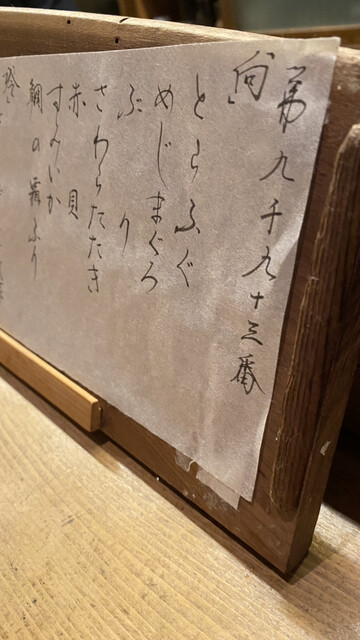 第九千九十三番
向
とらふぐ
めじまぐろ
ぶり
さわらたたき
赤貝
すみいか
鯛の霜ふり